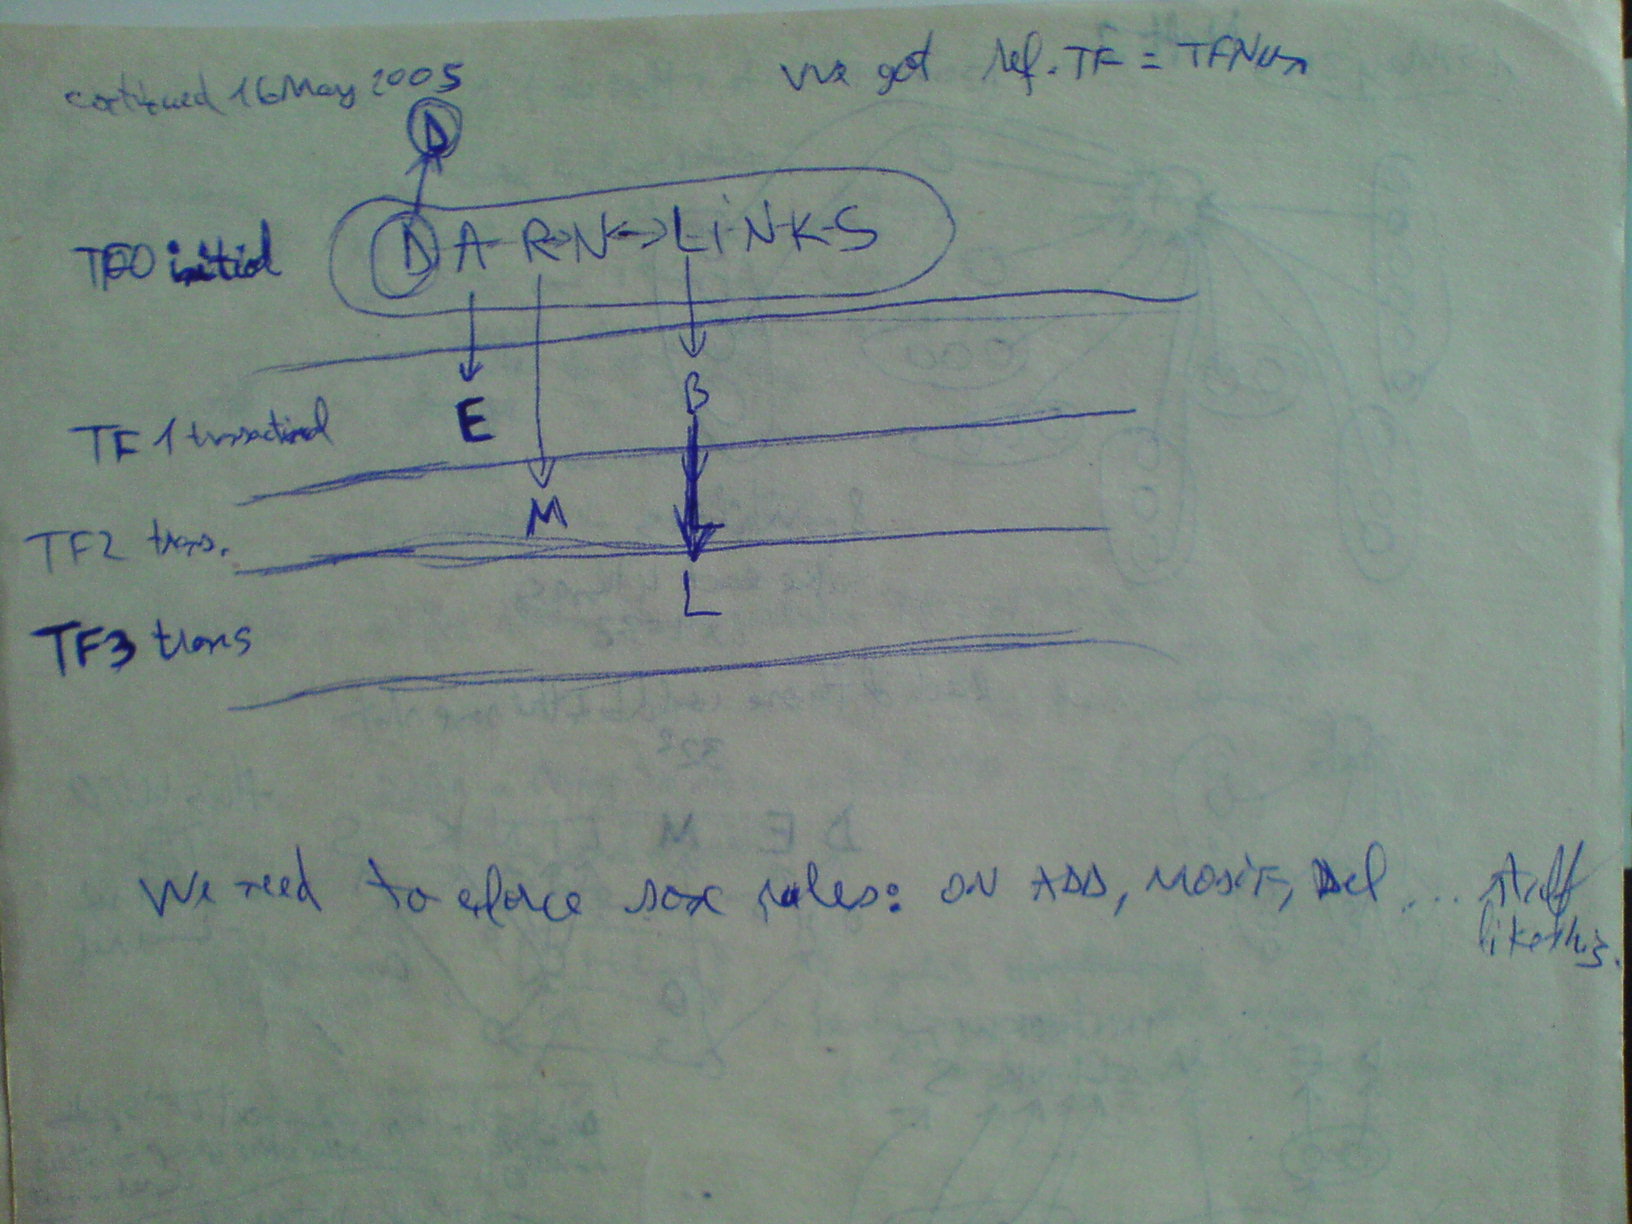 continued 16 May 2005
We got ref. TF =
D
TF0 initial
D A-R-N<->L-i-N-K-S
E
B
TF 1
M
TF2 trans.
L
TF3 trans
We need to eforce sox rules: ON ADD, MODIF, Del ... stuff
like this.